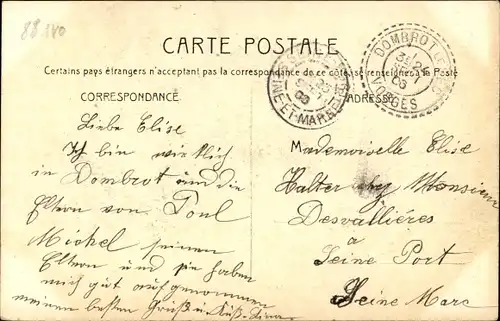 88 140
CARTE POSTALE
Certains pays étrangers n'acceptant pas la correspondance de ce côté, se renseigner à la Poste
CORRESPONDANCE
ADRESSE
DOMBROT
VOSGES
SEINE-ET-MARNE
Liebe Elise
Ich bin wirklich
in Dombrot und die
Eltern von Poul
Michel seinen
Eltern und sie haben
mich gut aufgenommen
meinen besten Gruß u. Kuß
Mademoiselle Elise
Halter chy Monsieur
Desvallières
a
Seine Port
Seine Marc